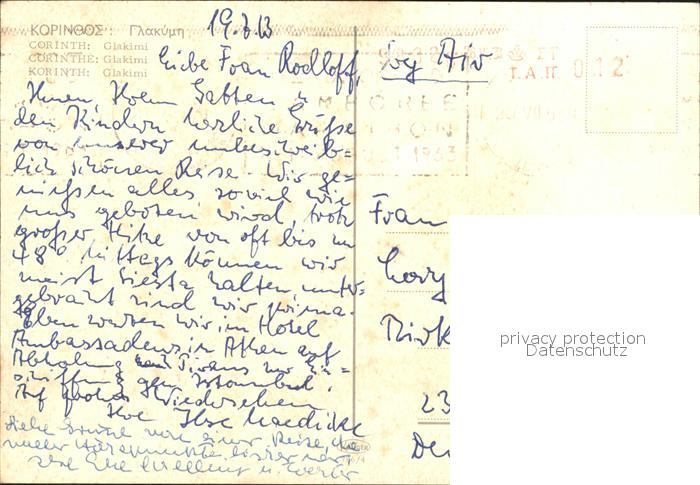 ΚΟΡΙΝΘΟΣ: Γλακύμη
CORINTH: Glakimi
CORINTHE: Glakimi
KORINTH: Glakimi
19.7.
Liebe Frau Rodloff,
by Air
T.A.Π. 012
Ihnen, Ihrem Gatten u.
den Kindern herzliche Grüße
von unserer unbeschreib=
lich schönen Reise. Wir ge=
nießen alles, soviel wie
uns geboten wird, trotz
großer Hitze von oft bis zu
48° Mittags können wir
meist Siesta halten, unter=
gebracht sind wir prima.
Eben warten wir im Hotel
Ambassadeurs in Athen auf
Abholung zur Ein=
schiffung gen Istambul.
Auf frohes Wiedersehen
Ihre Ilse
JAMBOREE
1963
Frau
23
privacy protection
Datenschutz